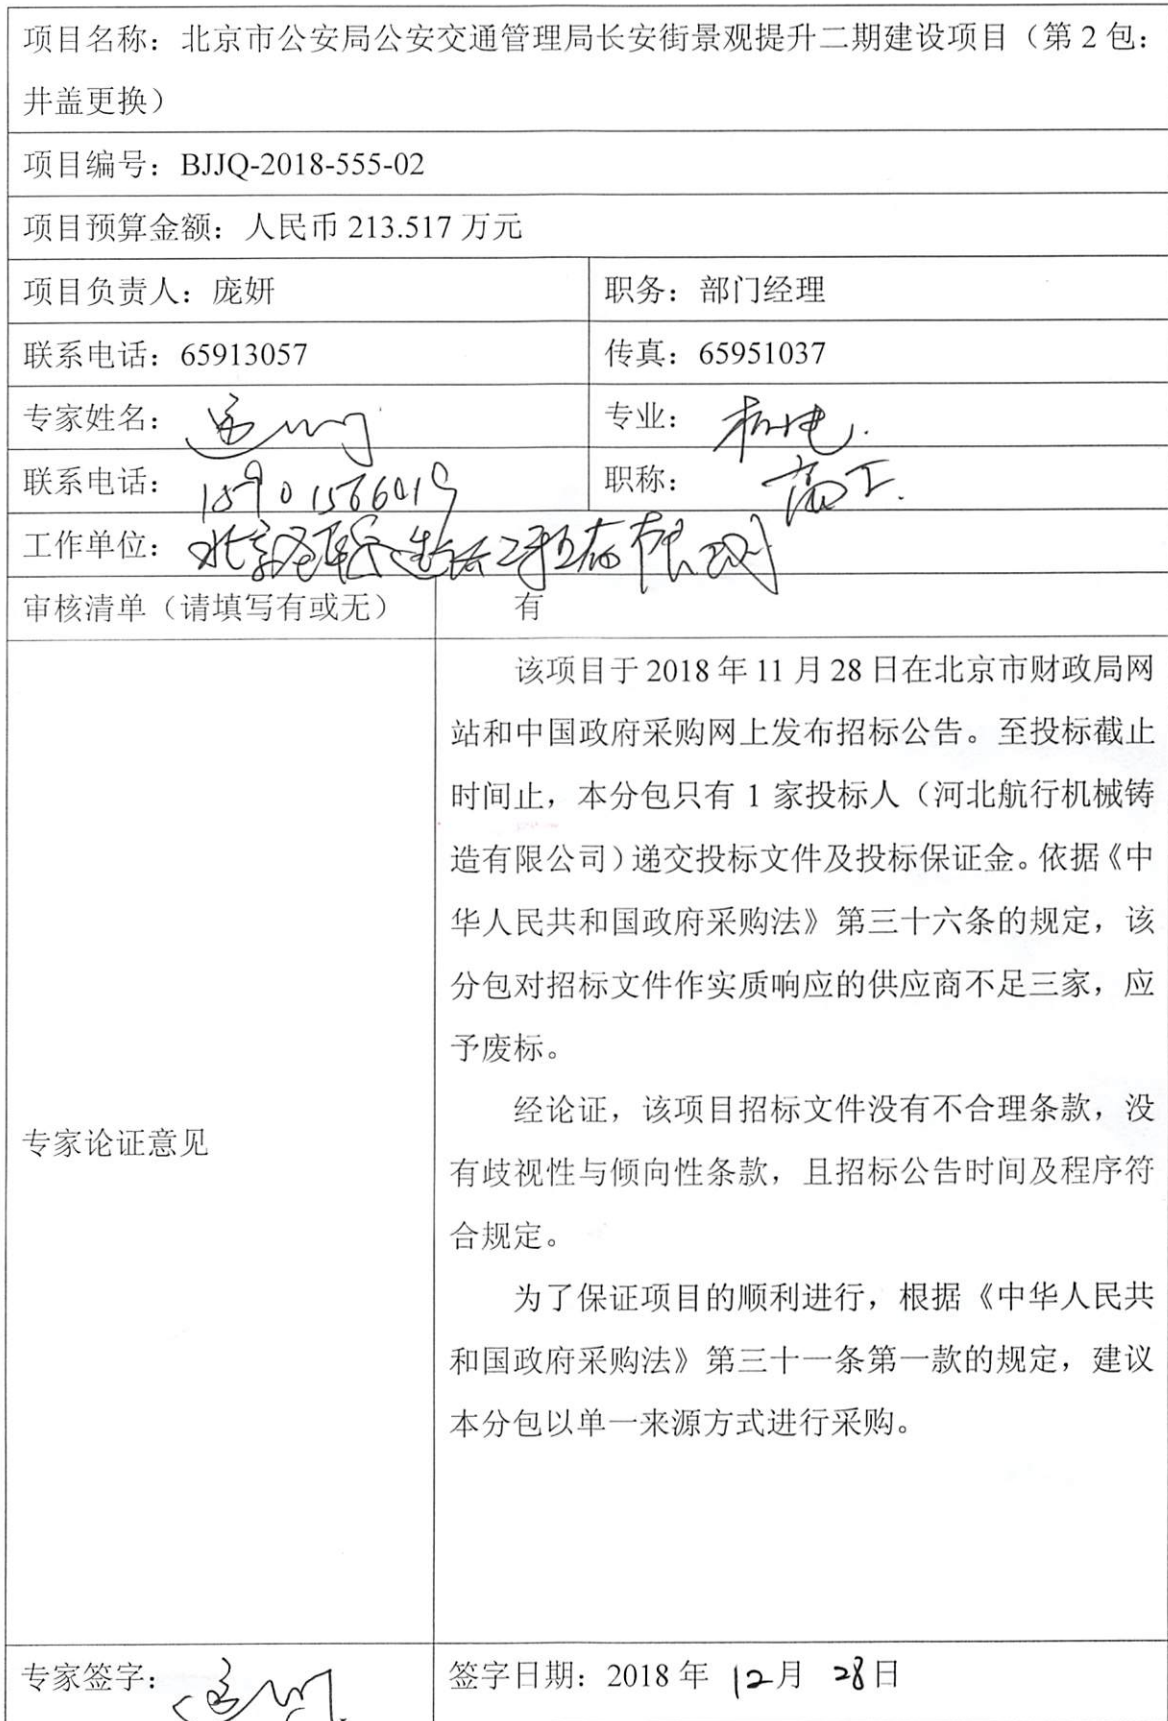 项目名称：北京市公安局公安交通管理局长安街景观提升二期建设项目（第2包：
井盖更换）
项目编号：BJJQ-2018-555-02
项目预算金额：人民币 213.517 万元
项目负责人：庞妍 职务：部门经理
联系电话：65913057 传真：65951037
专家姓名： 专业：机电.
联系电话： 职称：高工.
工作单位：
审核清单（请填写有或无） 有
该项目于 2018 年 11 月 28 日在北京市财政局网
站和中国政府采购网上发布招标公告。至投标截止
时间止，本分包只有 1 家投标人（河北航行机械铸
造有限公司）递交投标文件及投标保证金。依据《中
华人民共和国政府采购法》第三十六条的规定，该
分包对招标文件作实质响应的供应商不足三家，应
予废标。
专家论证意见
经论证，该项目招标文件没有不合理条款，没
有歧视性与倾向性条款，且招标公告时间及程序符
合规定。
为了保证项目的顺利进行，根据《中华人民共
和国政府采购法》第三十一条第一款的规定，建议
本分包以单一来源方式进行采购。
专家签字： 签字日期：2018 年 12月 28日